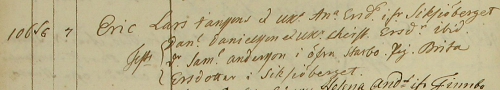 106 5/6 7 Eric Lars Hansons et Ux. An. Ersd. ifr Siksjöberget
Test. Dan. Danielson et Ux. Christ. Ersd. ibid.
Dr. Sam. Anderson i öfra Starbo. Pig. Brita
Ersdotter i Siksjöberget.
Helena And. ifr Finnbo